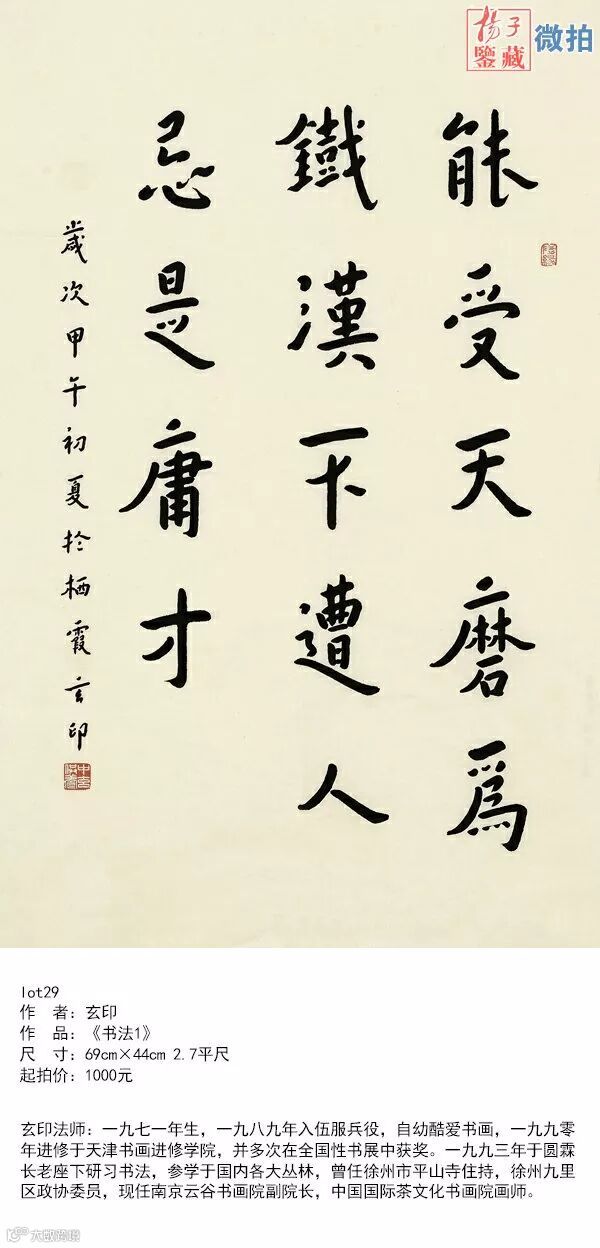 揚子
鑒藏
微拍
能受天磨爲
鐵漢不遭人
忌是庸才
歲次甲午初夏於栖霞玄印
lot29
作 者：玄印
作 品：《书法1》
尺 寸：69cm×44cm 2.7平尺
起拍价：1000元
玄印法师：一九七一年生，一九八九年入伍服兵役，自幼酷爱书画，一九九零
年进修于天津书画进修学院，并多次在全国性书展中获奖。一九九三年于圆霖
长老座下研习书法，参学于国内各大丛林，曾任徐州市平山寺住持，徐州九里
区政协委员，现任南京云谷书画院副院长，中国国际茶文化书画院画师。
大数跨境